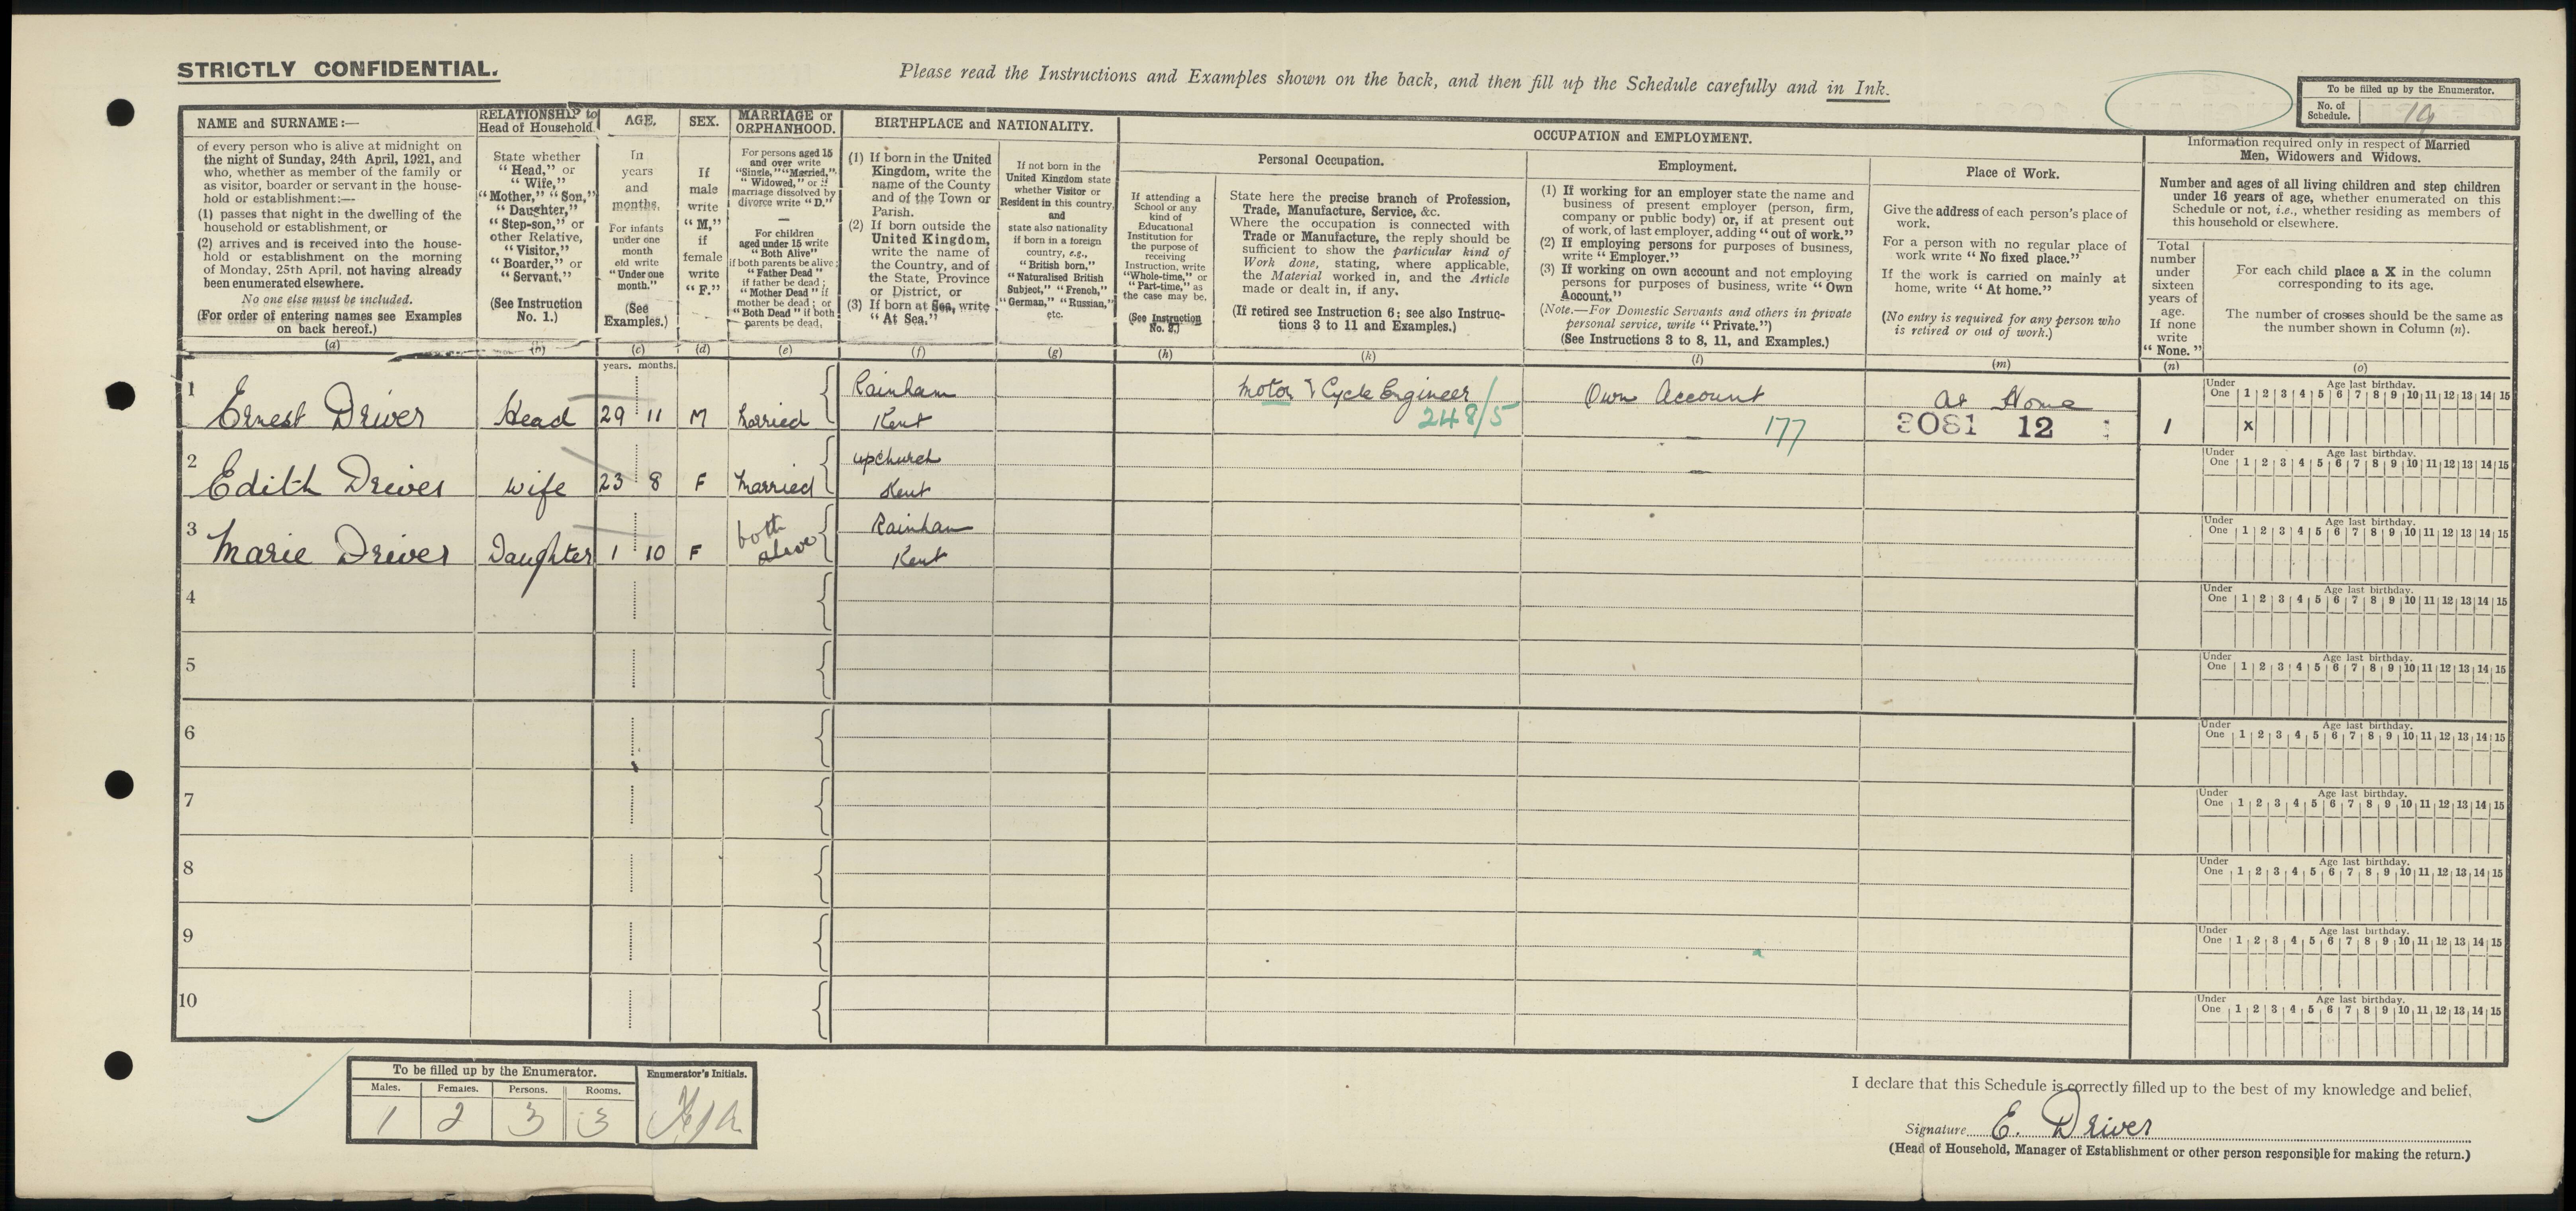 STRICTLY CONFIDENTIAL.
Please read the Instructions and Examples shown on the back, and then fill up the Schedule carefully and in Ink.
To be filled up by the Enumerator.
No. of Schedule. 19
NAME and SURNAME:—
of every person who is alive at midnight on
the night of Sunday, 24th April, 1921, and
who, whether as member of the family or
as visitor, boarder or servant in the house-
hold or establishment:—
(1) passes that night in the dwelling of the
household or establishment, or
(2) arrives and is received into the house-
hold or establishment on the morning
of Monday, 25th April, not having already
been enumerated elsewhere.
No one else must be included.
(For order of entering names see Examples
on back hereof.)
(a)
RELATIONSHIP to
Head of Household.
State whether
"Head," or
"Wife,"
"Mother," "Son,"
"Daughter,"
"Step-son," or
other Relative,
"Visitor,"
"Boarder," or
"Servant."
(See Instruction
No. 1.)
(b)
AGE.
In
years
and
months.
For infants
under one
month
old write
"Under one
month."
(See
Examples.)
(c)
SEX.
If
male
write
"M,"
if
female
write
"F."
(d)
MARRIAGE or
ORPHANHOOD.
For persons aged 15
and over write
"Single," "Married,"
"Widowed," or if
marriage dissolved by
divorce write "D."
—
For children
aged under 15 write
"Both Alive"
if both parents be alive;
"Father Dead"
if father be dead;
"Mother Dead" if
mother be dead; or
"Both Dead" if both
parents be dead.
(e)
BIRTHPLACE and NATIONALITY.
(1) If born in the United
Kingdom, write the
name of the County
and of the Town or
Parish.
(2) If born outside the
United Kingdom,
write the name of
the Country, and of
the State, Province
or District, or
(3) If born at Sea, write
"At Sea."
(f)
If not born in the
United Kingdom state
whether Visitor or
Resident in this country,
and
state also nationality
if born in a foreign
country, e.g.,
"British born,"
"Naturalised British
Subject," "French,"
"German," "Russian,"
etc.
(g)
OCCUPATION and EMPLOYMENT.
Personal Occupation.
If attending a
School or any
kind of
Educational
Institution for
the purpose of
receiving
Instruction, write
"Whole-time," or
"Part-time," as
the case may be.
(See Instruction
No. 2.)
(h)
State here the precise branch of Profession,
Trade, Manufacture, Service, &c.
Where the occupation is connected with
Trade or Manufacture, the reply should be
sufficient to show the particular kind of
Work done, stating, where applicable,
the Material worked in, and the Article
made or dealt in, if any.
(If retired see Instruction 6; see also Instruc-
tions 3 to 11 and Examples.)
(k)
Employment.
(1) If working for an employer state the name and
business of present employer (person, firm,
company or public body) or, if at present out
of work, of last employer, adding "out of work."
(2) If employing persons for purposes of business,
write "Employer."
(3) If working on own account and not employing
persons for purposes of business, write "Own
Account."
(Note.—For Domestic Servants and others in private
personal service, write "Private.")
(See Instructions 3 to 8, 11, and Examples.)
(l)
Place of Work.
Give the address of each person's place of
work.
For a person with no regular place of
work write "No fixed place."
If the work is carried on mainly at
home, write "At home."
(No entry is required for any person who
is retired or out of work.)
(m)
Information required only in respect of Married
Men, Widowers and Widows.
Number and ages of all living children and step children
under 16 years of age, whether enumerated on this
Schedule or not, i.e., whether residing as members of
this household or elsewhere.
Total
number
under
sixteen
years of
age.
If none
write
"None."
(n)
For each child place a X in the column
corresponding to its age.
The number of crosses should be the same as
the number shown in Column (n).
(o)
years. months.
Under One Age last birthday. 1 2 3 4 5 6 7 8 9 10 11 12 13 14 15
1 Ernest Driver Head 29 11 M Married Rainham Kent Motor & Cycle Engineer 248/5 Own Account 177 At Home 3081 12 1 x
Under One Age last birthday. 1 2 3 4 5 6 7 8 9 10 11 12 13 14 15
2 Edith Driver Wife 23 8 F Married Upchurch Kent
Under One Age last birthday. 1 2 3 4 5 6 7 8 9 10 11 12 13 14 15
3 Marie Driver Daughter 1 10 F both alive Rainham Kent
Under One Age last birthday. 1 2 3 4 5 6 7 8 9 10 11 12 13 14 15
4
Under One Age last birthday. 1 2 3 4 5 6 7 8 9 10 11 12 13 14 15
5
Under One Age last birthday. 1 2 3 4 5 6 7 8 9 10 11 12 13 14 15
6
Under One Age last birthday. 1 2 3 4 5 6 7 8 9 10 11 12 13 14 15
7
Under One Age last birthday. 1 2 3 4 5 6 7 8 9 10 11 12 13 14 15
8
Under One Age last birthday. 1 2 3 4 5 6 7 8 9 10 11 12 13 14 15
9
Under One Age last birthday. 1 2 3 4 5 6 7 8 9 10 11 12 13 14 15
10
To be filled up by the Enumerator.
Males. Females. Persons. Rooms.
1 2 3 3
Enumerator's Initials.
I declare that this Schedule is correctly filled up to the best of my knowledge and belief.
Signature E. Driver
(Head of Household, Manager of Establishment or other person responsible for making the return.)